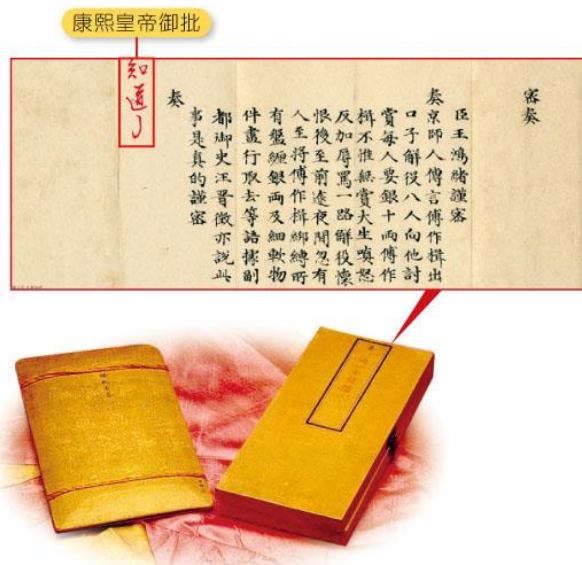 康熙皇帝御批
密奏
臣王鴻緒謹密
奏京師人傳言傅作楫出
口子解役八人向他討
賞每人要銀十兩傅作
楫不惟無賞大生嗔怒
反加辱罵一路解役懷
恨後至前途夜間忽有
人至將傅作楫綁縛所
有盤纏銀両及細軟物
件盡行取去等語據副
都御史汪晋徵亦說此
事是真的謹密
奏
知道了